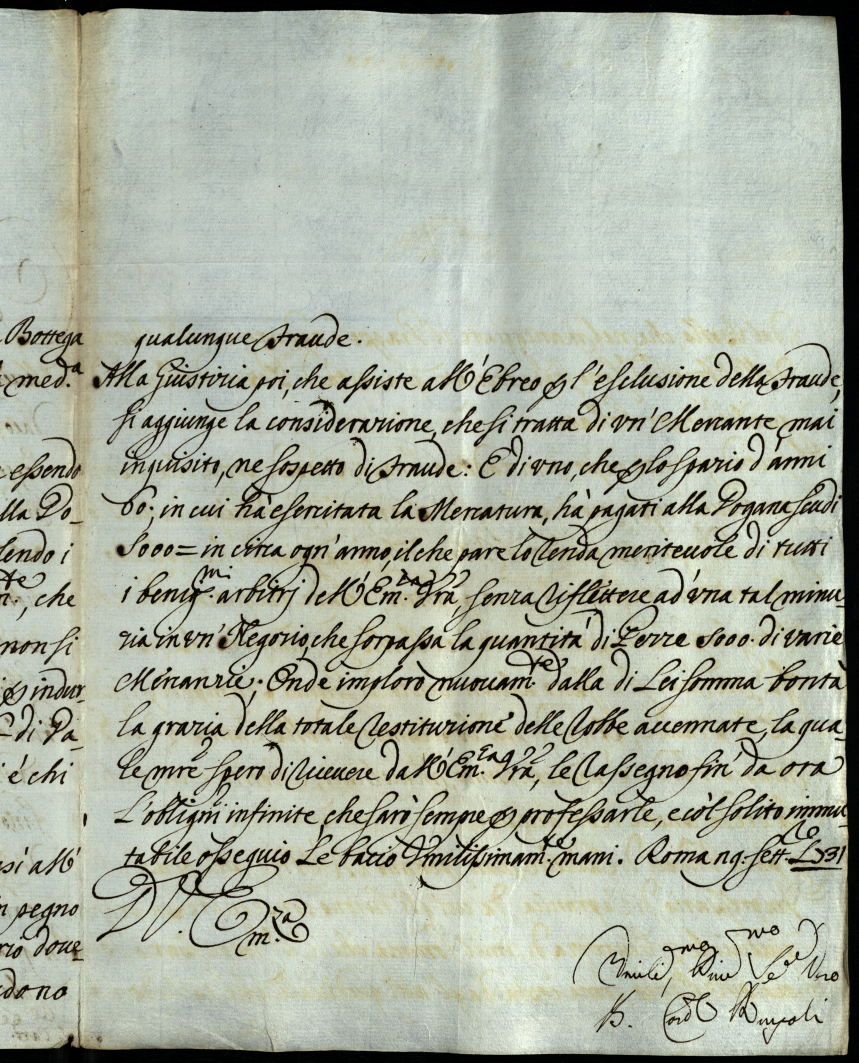 Bottega
med.ª
essendo
lla Do-
endo i
te, che
non si
p indur-
di Da-
é chi
sì all'
in pegno
rio doue-
dono
qualunque fraude.
Alla Giustizia poi, che assiste all'Ebreo p l'esclusione della fraude,
si aggiunge la considerazione, che si tratta di vn' Mercante mai
inquisito, ne sospetto di fraude: E di vno, che p lo spazio d'anni
60; in cui hà esercitata la Mercatura, hà pagati alla Dogana scudi
5000= in circa ogn'anno, il che pare lo renda meriteuole di tutti
i benig.mi arbitrj dell'Em.za Vrã, senza riflettere ad vna tal minu-
zia in vn' Negozio, che sorpassa la quantità di Pezze 5000. di varie
Mercanzie; Onde imploro nuouam.te dalla di Lei somma bontà
la grazia della totale restituzione delle robbe accennate, la qua-
le mrẽ spero di riceuere dall'Em.za Vrã, le rassegno fin' da ora
L'obligni infinite, che sarò sempre p professarle, e còl solito immu-
tabile ossequio Le bacio Vmilissimam.te mani. Roma 29. Sett.
D V. Em.za
Vmilis.mo Seru.re Vero
Card.l Ruspoli